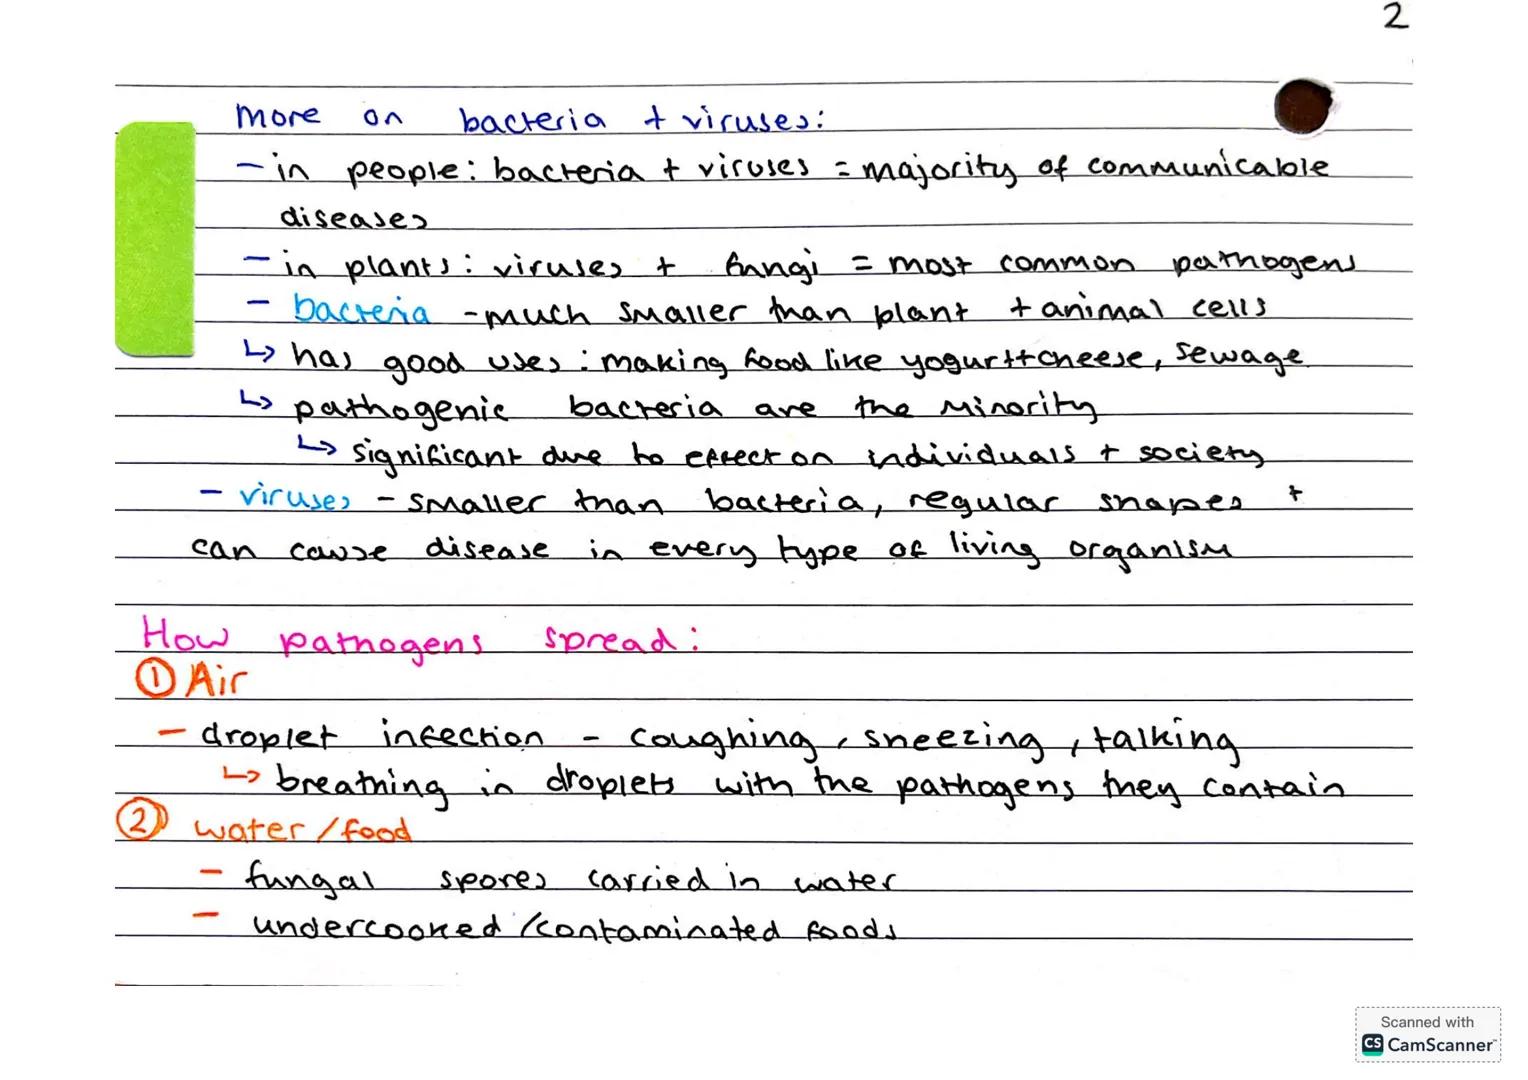 2
More on bacteria + viruses:
- in people: bacteria + viruses = majority of communicable
diseases
- in plants: viruses + fungi = most common pathogens
- bacteria - much smaller than plant + animal cells
↳ has good uses: making food like yogurt+cheese, sewage
↳ pathogenic bacteria are the minority
↳ significant due to effect on individuals + society
- viruses - smaller than bacteria, regular shapes +
can cause disease in every type of living organism
How pathogens spread:
① Air
- droplet infection - coughing, sneezing, talking
↳ breathing in droplets with the pathogens they contain
② water/food
- fungal spores carried in water
- undercooked/contaminated foods
Scanned with
CS CamScanner